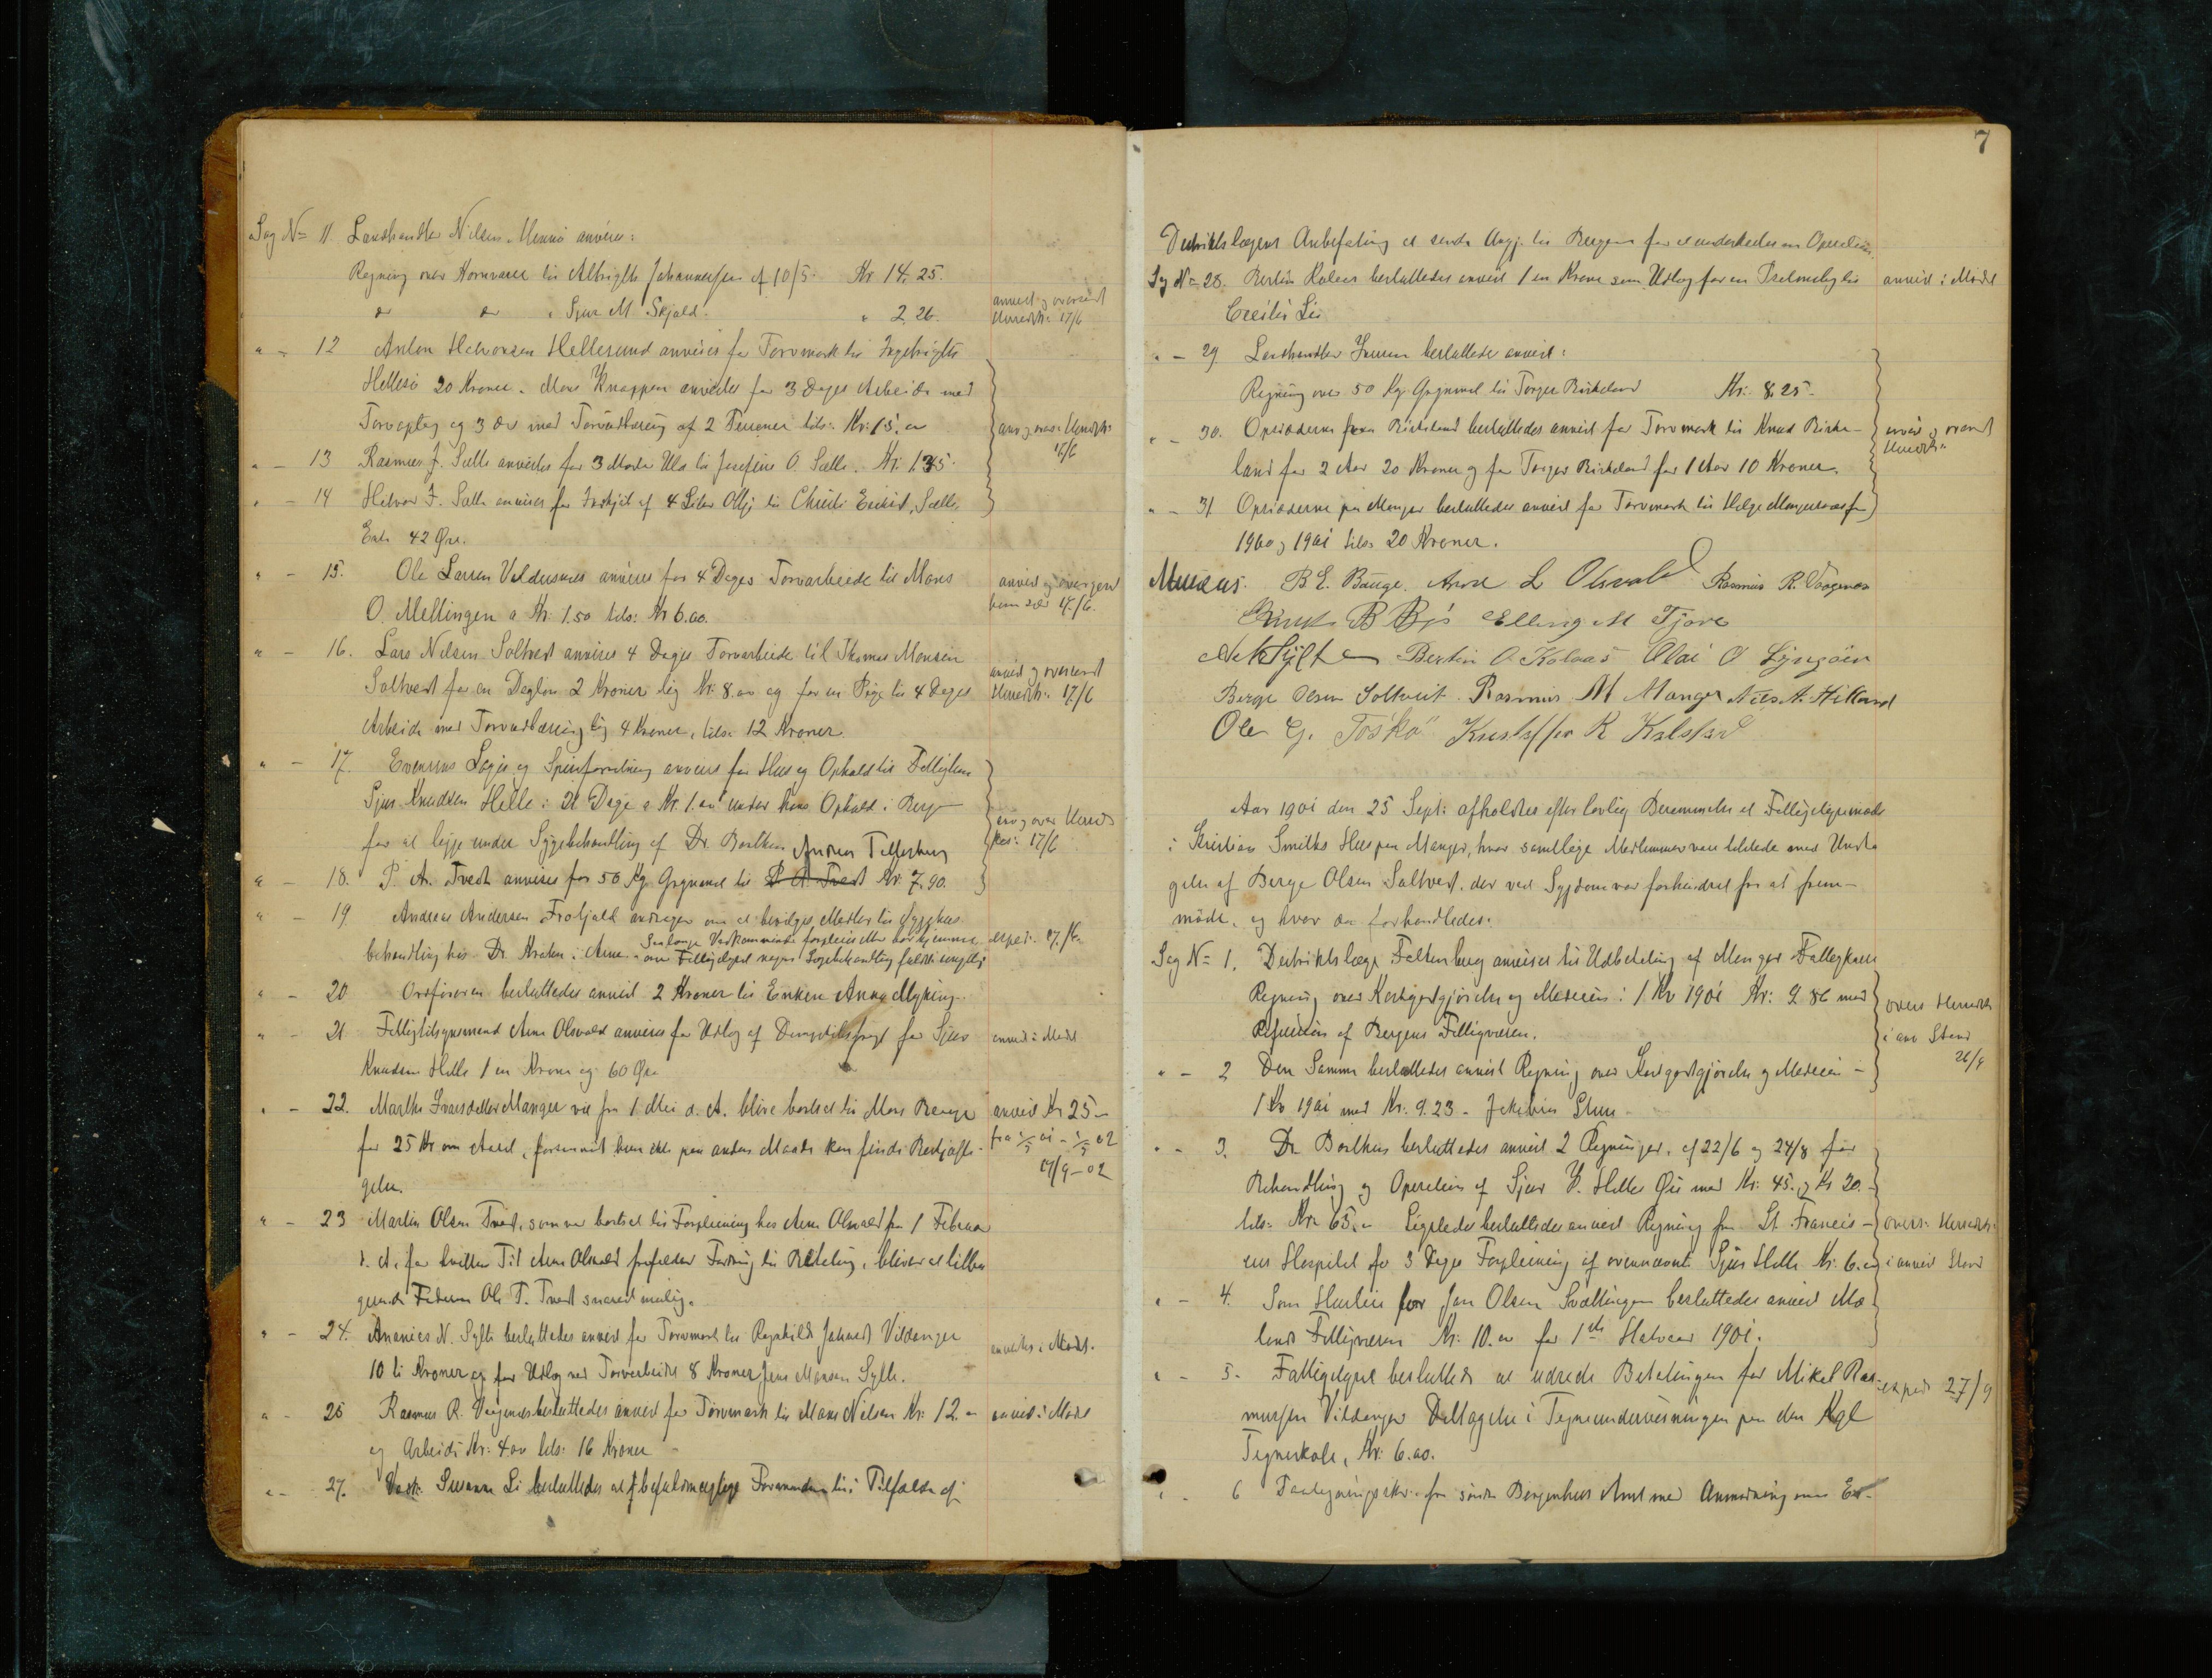 Sag No 11. Landhandler Nilsen Manger anvises:
Regning over Kornvarer til Albrigth Johannessen af 10/5. Kr 14.25.
do do " Sjur M Skjold. " 2.26.
anvist og oversendt
Herredsk: 17/6
" - 12 Anton Halvorsen Hellesund anvises for Torvmark til Ingebrigth
Hellesø 20 Kroner. Mons Knappen anvistes for 3 Dages Arbeide med
Torvoptag og 3 do med Torvudbæring af 2 Personer tils: Kr: 15. "
anv og overs: Herredsk:
17/6
" - 13 Rasmus J. Sælle anvistes for 3 Mark Uld til Josefine O. Sælle. Kr. 1.35.
" - 14 Halvor J. Sælle anvises for Indkjøb af 4 Liter Olje til Christi Eriksd. Sælle,
Enke 42 Øre.
" - 15. Ole Larsen Veldusnes anvises for 4 Dages Torvarbeide til Mons
O. Mellingen a Kr. 1.50 tils: Kr 6.00.
anvist og oversendt
17/6.
" - 16. Lars Nilsen Soltvedt anvises 4 Dages Torvarbeide til Thomas Monsen
Soltvedt for en Dagløn 2 Kroner lig Kr: 8.00 og for en Pige til 4 Dages
Arbeide med Torvudbæring lig 4 Kroner, tils: 12 Kroner.
anvist og oversendt
Herredsk: 17/6
" - 17. Evensens Logis og Spiseforretning anvises for Hus og Ophold til Fattiglem
Sjur Knudsen Helle i 21 Dage a Kr. 1.00 under hans Ophold i Bergen
for at ligge under Sygebehandling af Dr. Borthen
anv og over Herreds
kas: 17/6
Andrea Tellesberg
" - 18. P. A. Tvedt anvises for 50 Kg Grynmel til P. A. Tvedt Kr. 7.90.
" - 19 Andreas Andersen Frotjold andrager om at bevilges Midler til Sygehus
behandling hos Dr. Kroken i Arne. Saalænge Vedkommende forpleies eller bor hjemme
anser Fattigstyret nogen Lægebehandling faldt unyttig
exped: 17/6.
" - 20 Ordføreren besluttedes anvist 2 Kroner til Enken Anna Myking.
" - 21. Fattigtilsynsmand Arne Olsvold anvises for Udlæg af Dampskibsfragt for Sjur
Knudsen Helle 1 en Krone og 60 Øre
anvist i Mødet
" - 22. Marthe Ivarsdatter Manger vil fra 1 Mai d. A. blive bortsat til Mons Bauge
for 25 Kr om Aaret, forsaavidt hun ikke paa anden Maade kan finde Beskjæfti-
gelse.
anvist Kr 25 -
fra 1/5 01 - 1/5 02
17/9 - 02
" - 23 Martin Olsen Tvedt, som var bortsat til Forpleining hos Arne Olsvold fra 1 Februar
d. A. for hvilken Tid Arne Olsvold frafalder Fordring til Betaling, bliver at tilba
gesende Faderen Ole T. Tvedt snarest mulig.
" - 24. Ananias N. Sylte besluttedes anvist for Torvmark til Ragnhild Jakobsd. Vildanger
10 ti Kroner og for Udlæg ved Torvarbeide 8 Kroner Jens Monsen Sylte.
anvistes i Mødet.
" - 25 Rasmus R. Vaagenes besluttedes anvist for Torvmark til Mons Nilsen Kr: 12. "
og Arbeide Kr: 4.00 tils: 16 Kroner
anvist i Mødet
" - 27. Susanne Li besluttedes at befuldmægtige Formanden til i Tilfælde af
7
Distriktslægens Anbefaling at sende Angj. til Bergen for at underkastes en Operation
Sag No 28. Bertin Kolaas besluttedes anvist 1 en Krone som Udlæg for en Psalmebog til
Cecilia Li
anvist i Mødet
" - 29 Landhandler Jensen besluttedes anvist:
Regning over 50 Kg. Grynmel til Torger Birkeland Kr: 8.25.
" - 30. Opsidderne paa Birkeland besluttedes anvist for Torvmark til Knud Birke-
land for 2 Aar 20 Kroner og for Torger Birkeland for 1 Aar 10 Kroner.
anvist og oversendt
Herredsk:
" - 31 Opsidderne paa Manger besluttedes anvist for Torvmark til Helge Mangersnes for
1900 og 1901 tils: 20 Kroner.
B. E. Bauge. Arne L Olsvold Rasmus R. Vaagenes
B Bø Elling M Tjore
A N Sylte Bertin O Kolaas Olai O Lyngøen
Berge Olsen Soltveit. Rasmus M Manger Nils A. Hilland
Ole G. Toskø Kristoffer R Kalstad
Aar 1901 den 25 Sept: afholdtes efter lovlig Berammelse et Fattigstyremøde
i Kristian Smiths Hus paa Manger, hvor samtlige Medlemmer var tilstede med Undta
gelse af Berge Olsen Soltvedt, der ved Sygdom var forhindret fra at frem-
møde, og hvor da forhandledes:
Sag No 1. Distriktslæge Faltenberg anvises til Udbetaling af Manger Fattigkasse
Regning over Kostgodtgjørelse og Medicin i 1 Kv 1901 Kr: 9.86 mod
Refusion af Bergens Fattigvæsen.
overs Herredsk
i anv Stand
26/9
" - 2 Den Samme besluttedes anvist Regning over Kostgodtgjørelse og Medicin -
1 Kv 1901 med Kr. 9.23 -
" - 3. Dr. Borthen besluttedes anvist 2 Regninger, af 22/6 og 24/8 for
Behandling og Operation af Sjur K. Helles Øie med Kr: 45. og Kr 20. -
tils: Kr: 65. " Ligeledes besluttedes anvist Regning fra St. Francis-
cus Hospital for 3 Dages Forpleining af ovennævnte Sjur Helle Kr. 6.00
overs: Herredsk:
i anvist Stand
" - 4. Som Husleie for Jon Olsen Svællingen besluttedes anvist Mæ
lands Fattigvæsen Kr: 10.00 for 1ste Halvaar 1901.
" - 5. Fattigstyret besluttede at udrede Betalingen for Mikal Ras-
mussen Vildanger Deltagelse i Tegneundervisningen paa den Kgl
Tegneskole, Kr: 6.00.
exped 27/9
" - 6 fra søndre Bergenhus Amt med Anmodning om Er-